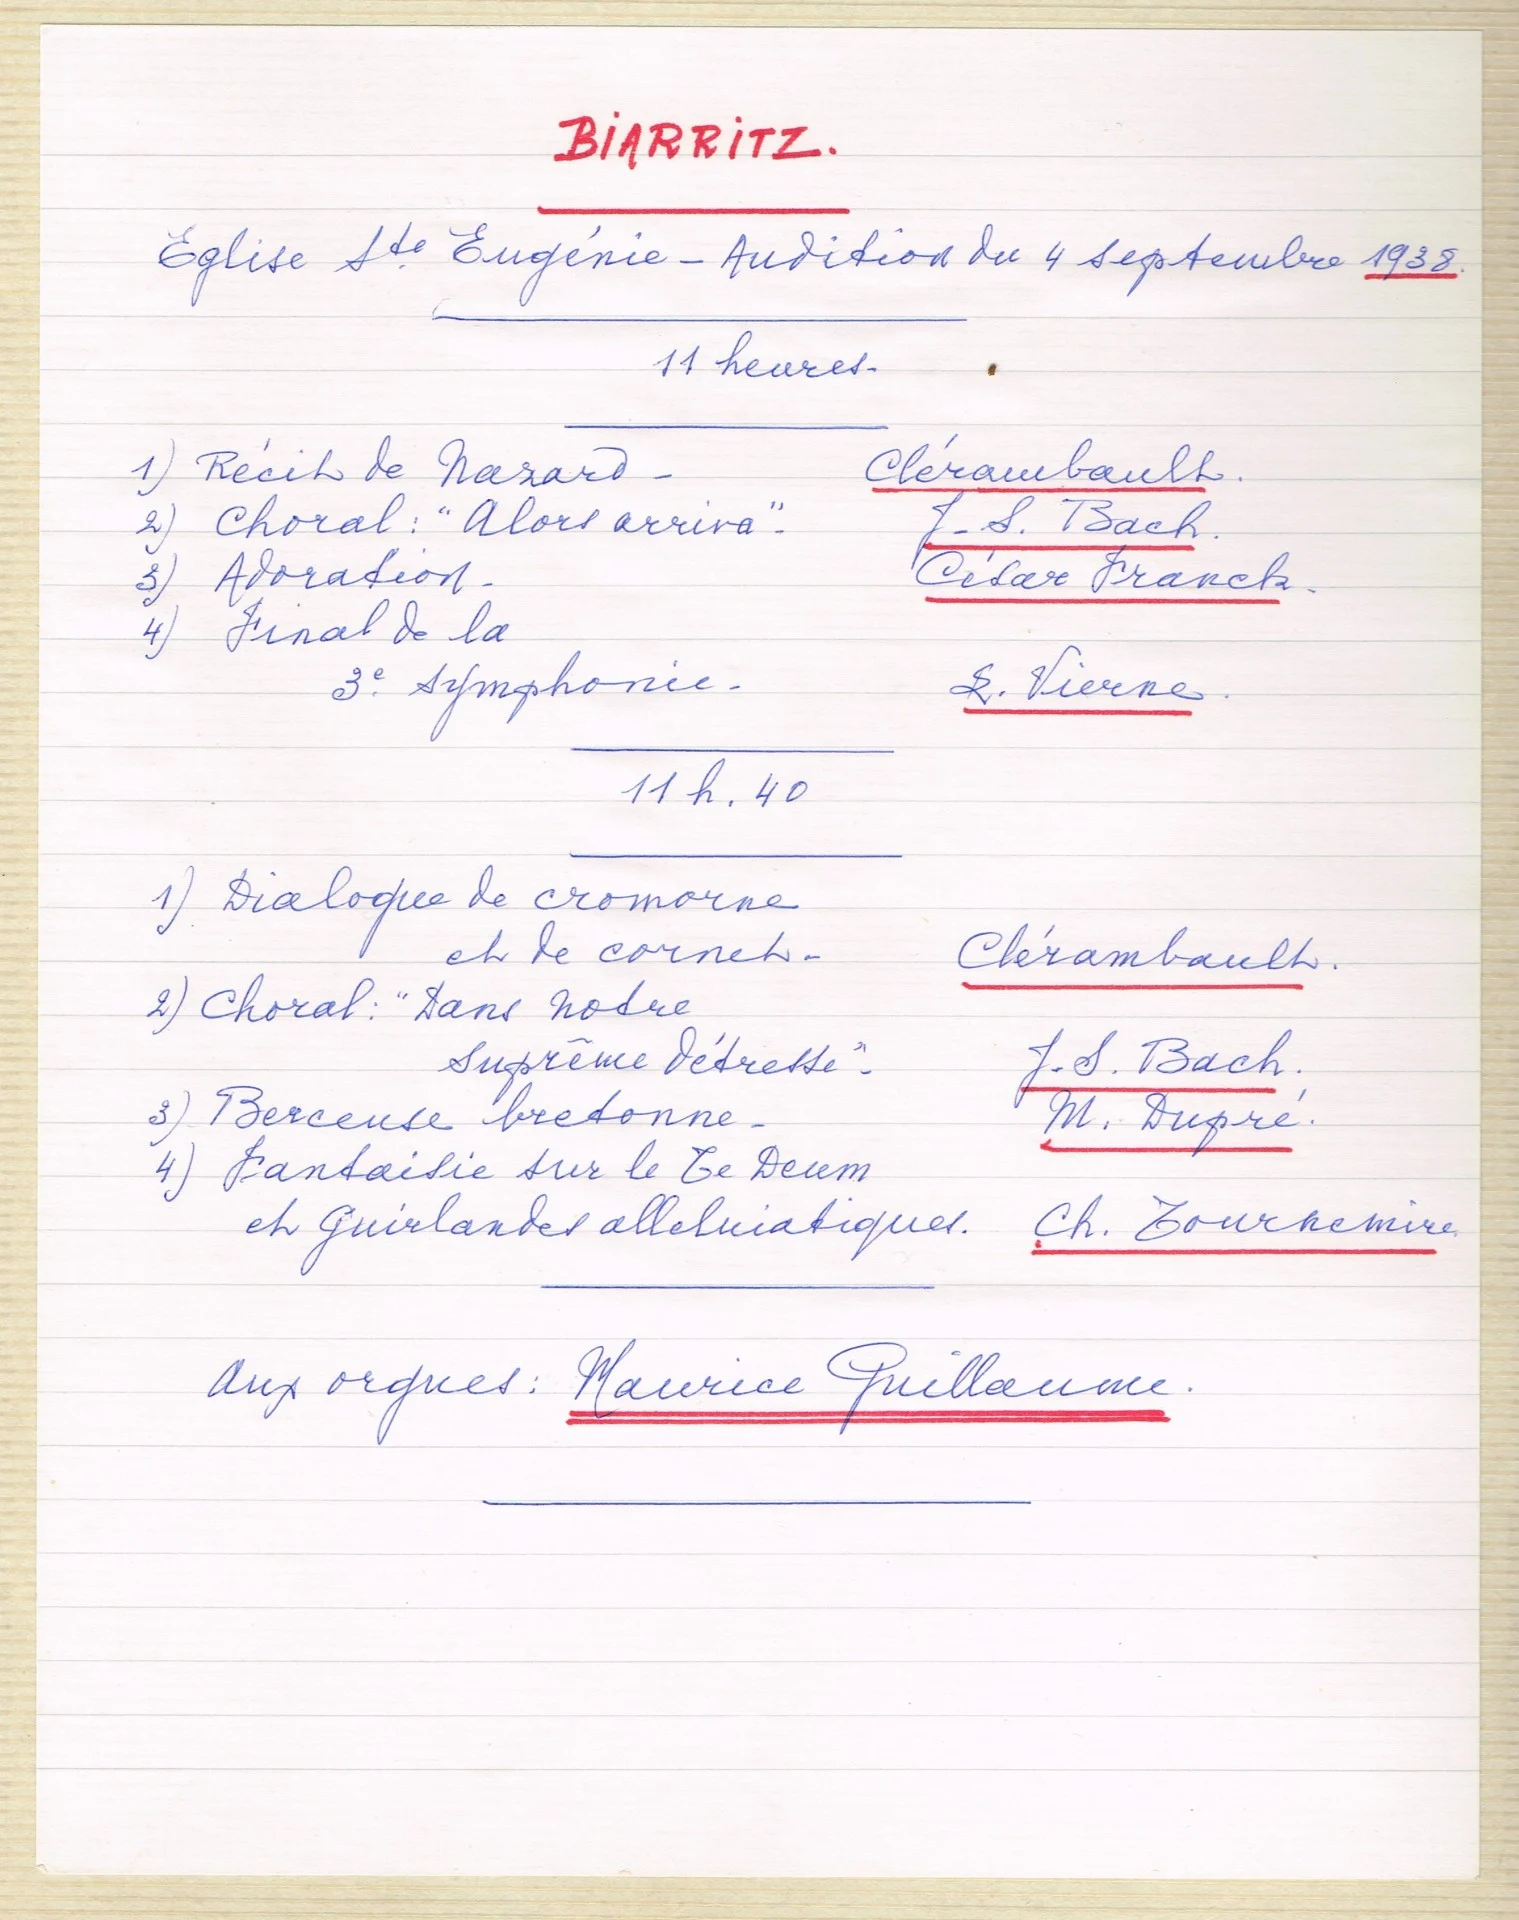 BIARRITZ.
Eglise Ste Eugénie - Audition du 4 septembre 1938.
11 heures-
1) Récit de Nazard - Clérambault.
2) Choral: "Alors arriva"- J. S. Bach.
3) Adoration - César Franck.
4) Final de la
3e symphonie. L. Vierne.
11 h. 40
1) Dialogue de cromorne
et de cornet - Clérambault.
2) Choral: "Dans notre
suprême détresse"- J. S. Bach.
3) Berceuse bretonne - M. Dupré.
4) Fantaisie sur le Te Deum
et Guirlandes alleluiatiques. Ch. Tournemire.
Aux orgues: Maurice Guillaume.